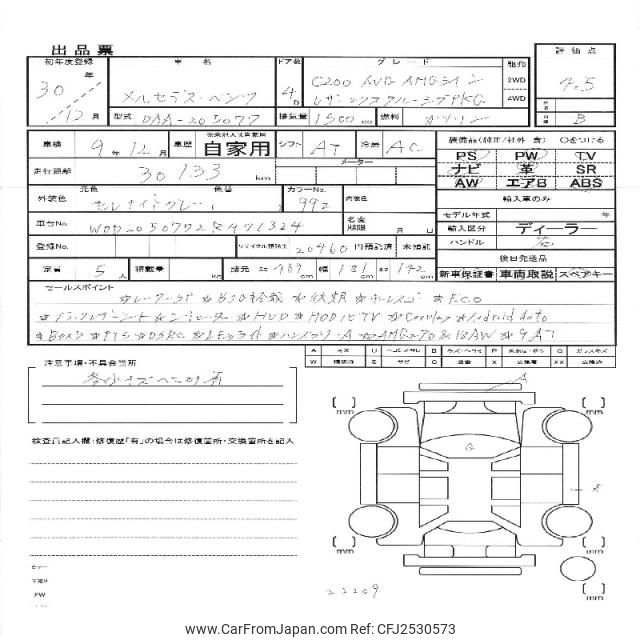 出品票
初年度登録 車名 ドア数 グレード 駆動 評価点
30年 12月
メルセデス・ベンツ 4D C200 AVG AMGライン 2WD 4.5
レザーエクスクルーシブPKG 4WD
型式 DAA-205077 排気量 1500cc 燃料 ガソリン B
車検 9年12月 車歴 自家用 シフト AT 冷房 AC
装備品(純正/社外 含) Oをつける
走行距離 30133km メーター
PS PW TV
ナビ 革 SR
AW エアB ABS
元色 色替 カラーNo.
外装色 セレナイトグレー ( ) 992 内装色
輸入車のみ
モデル年式 年
車台No. 名変期限 月 日
輸入区分 ディーラー
ハンドル 右
登録No. リサイクル預託金 20460 円預託済 未預託
後日発送品
定員 5人 積載量 kg 諸元 長さ 469cm 幅 181cm 高さ 142cm
新車保証書 車両取説 スペアキー
セールスポイント
☆レーダーSP ☆BSG搭載 ☆ ☆ キーレスゴー ☆ECO
☆HUD ☆HDDナビTV ☆Carplay ☆Android auto
☆Bカメラ ☆PTS ☆DSRC ☆LEDライト ☆ハンズフリーA ☆AMGエアロ&18AW ☆9AT
注意事項・不具合箇所
検査員記入欄:修復歴「有」の場合は修復箇所・交換箇所を記入
A キズ U B P G ガラスキズ
W S サビ C 腐食 X 交換要 XX 交換済
A
[ ] mm [ ] mm
G
A
[ ] mm [ ] mm
22209
www.CarFromJapan.com | Ref: CFJ2530573